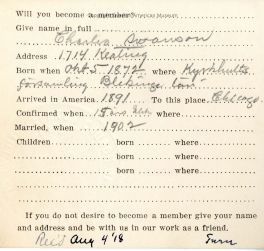 Will you become a member
Give name in full
Charles Swanson
Address 1714 Keating
Born when Okt. 5 1872 where Kyrkhults
församling Blekinge län
Arrived in America 1891 To this place Chicago
Confirmed when 15
Married, when 1902
Children born where
born where
born where
born where
If you do not desire to become a member give your name
and address and be with us in our work as a friend.
Rec'd Aug 4 '18